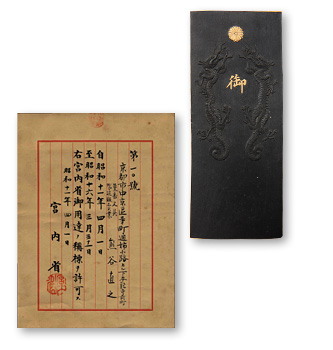 第一〇號
京都市中京區寺町通姉小路上ル下本能寺前町
熊谷直之
自昭和十一年四月一日
至昭和十六年三月三十一日
右宮内省御用達ノ稱標ヲ許可ス
昭和十一年四月一日
宮内省
御